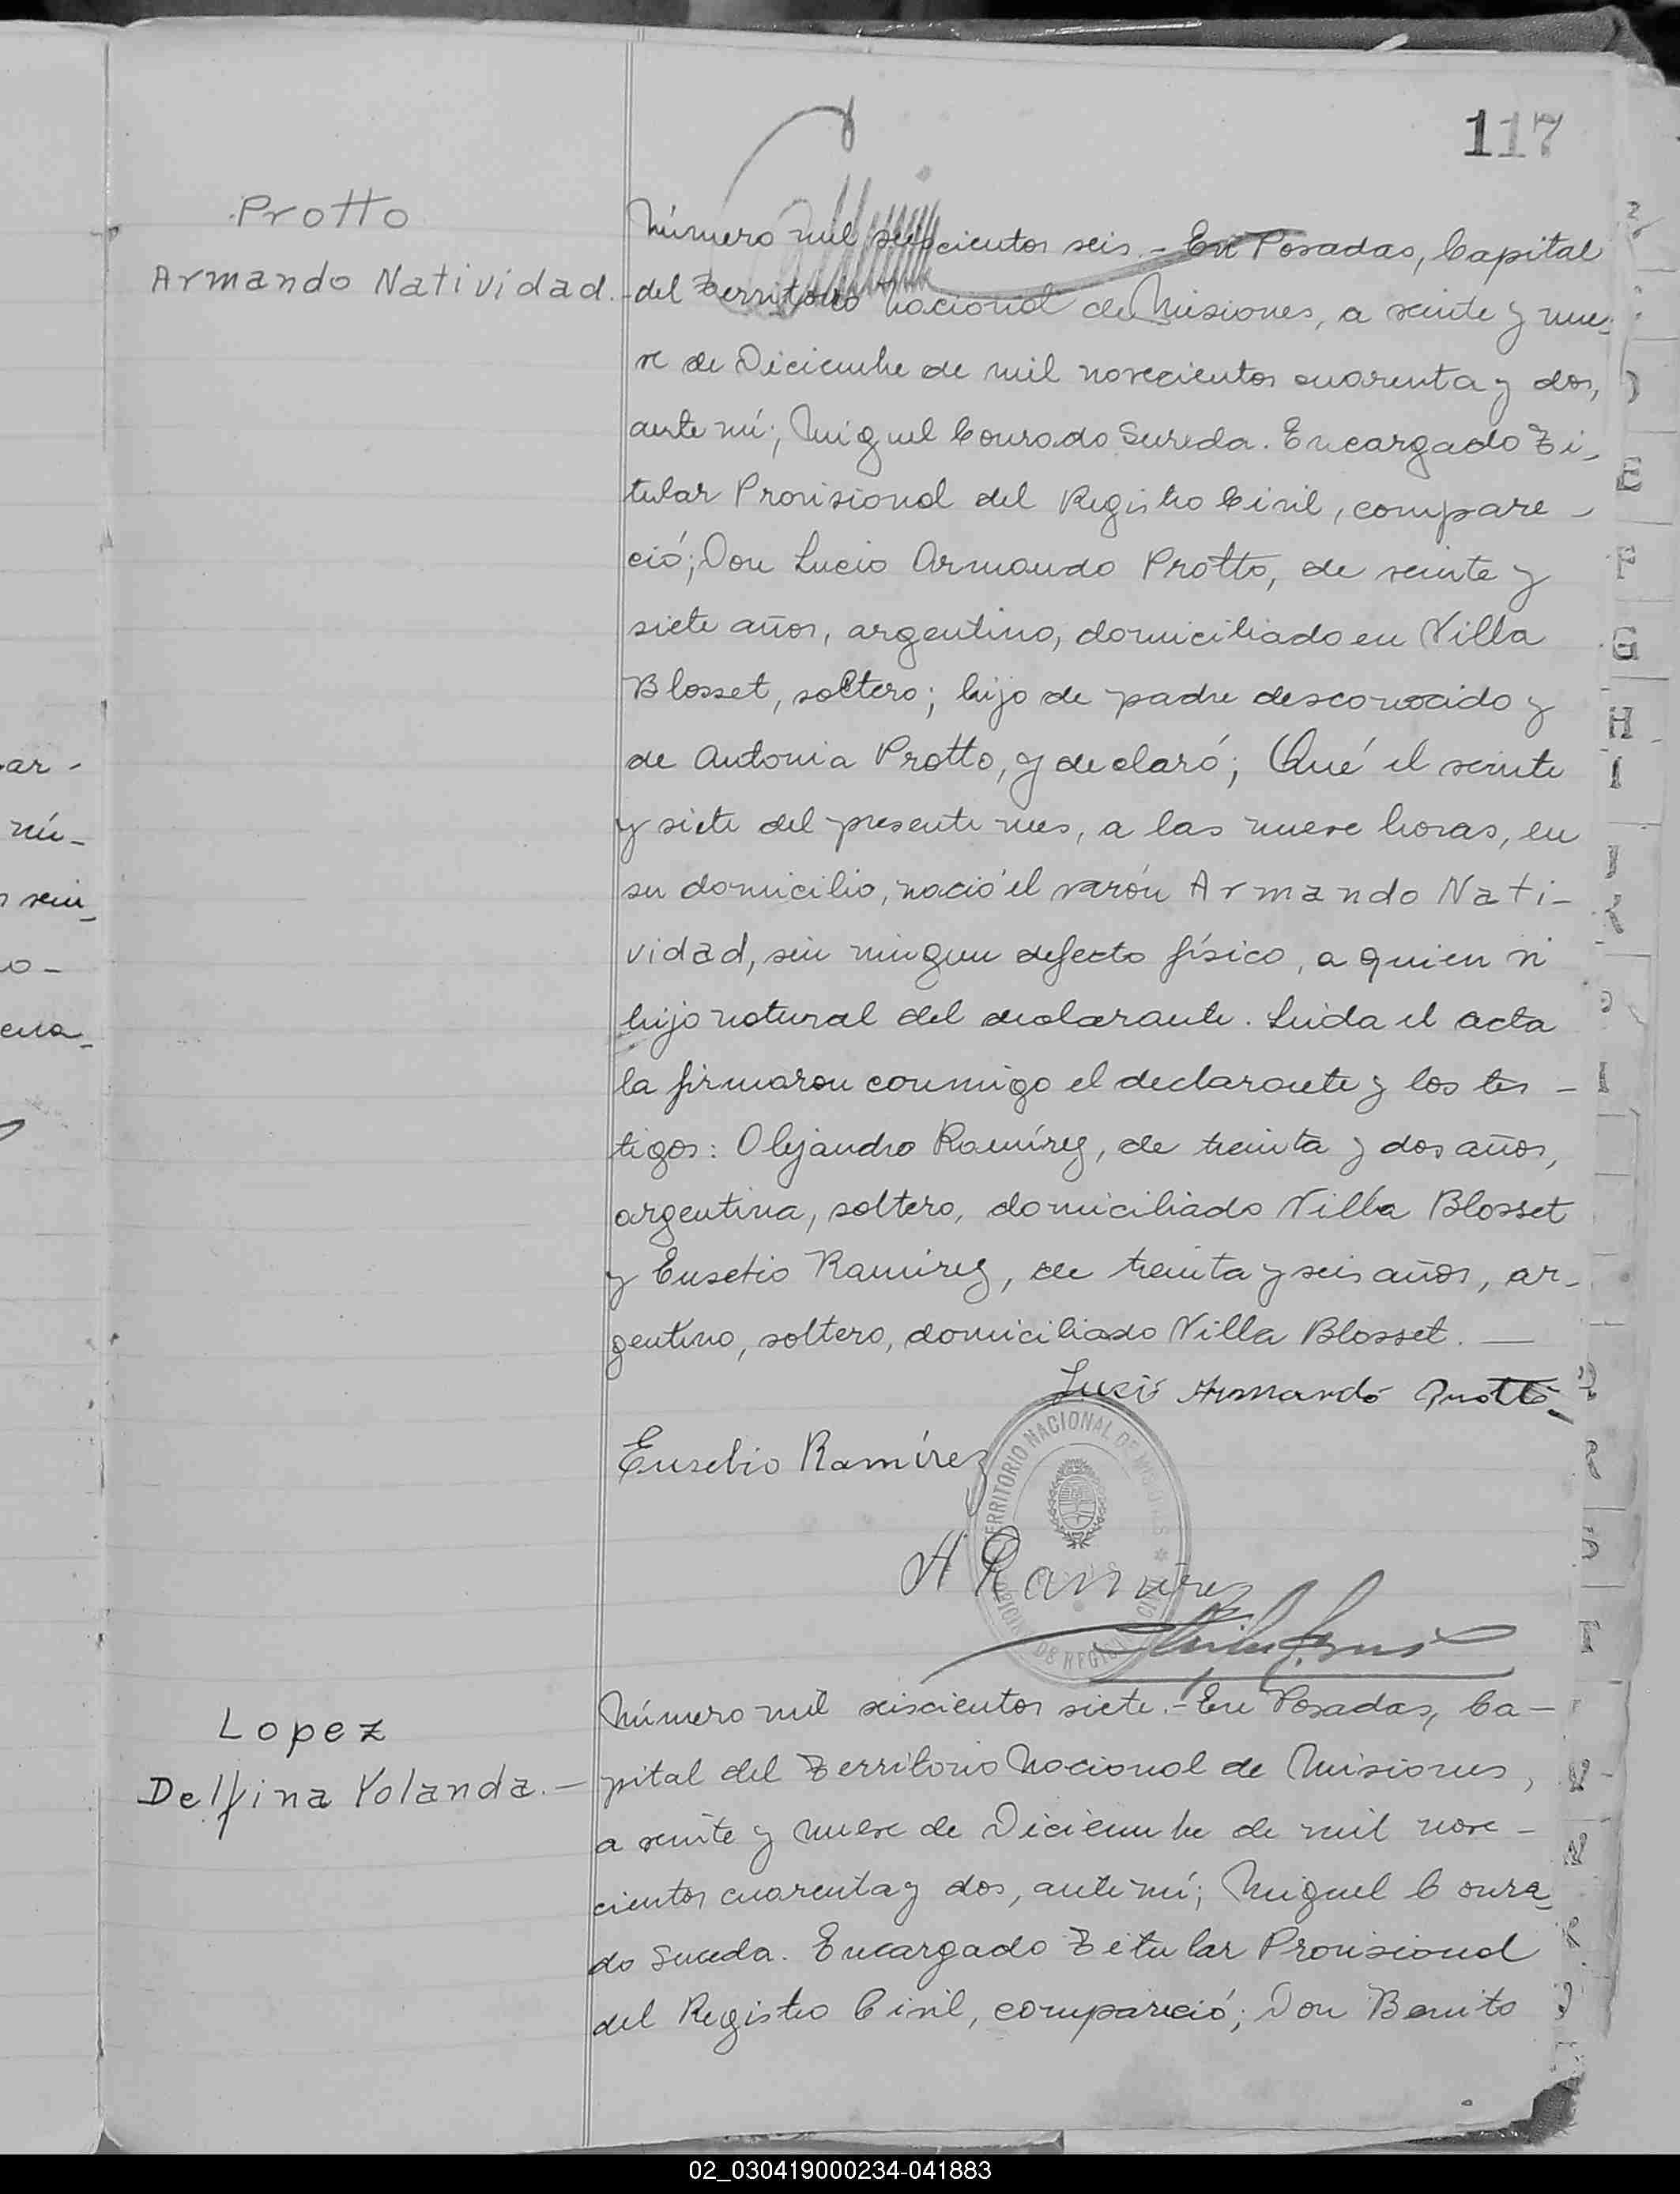 117
Protto
Armando Natividad.-
Número mil seiscientos seis.- En Posadas, Capital
del Territorio Nacional de Misiones, a veinte y nue-
ve de Diciembre de mil novecientos cuarenta y dos,
ante mí; Miguel Conrado Sureda. Encargado Ti-
tular Provisional del Registro Civil, compare-
ció; Don Lucio Armando Protto, de veinte y
siete años, argentino, domiciliado en Villa
Blosset, soltero; hijo de padre desconocido y
de Antonia Protto, y declaró; Qué el veinte
y siete del presente mes, a las nueve horas, en
su domicilio, nació el varón Armando Nati-
vidad, sin ningun defecto físico, a quien vi
hijo natural del declarante. Leida el acta
la firmaron conmigo el declarante y los tes-
tigos: Alejandro Ramírez, de treinta y dos años,
argentina, soltero, domiciliado Villa Blosset
y Eusebio Ramírez, de treinta y seis años, ar-
gentino, soltero, domiciliado Villa Blosset. —
Lucio Armando Protto
Eusebio Ramírez
A Ramirez
TERRITORIO NACIONAL DE MISIONES
Lopez
Delfina Yolanda.-
Número mil seiscientos siete.- En Posadas, Ca-
pital del Territorio Nacional de Misiones,
a veinte y nueve de Diciembre de mil nove-
cientos cuarenta y dos, ante mí; Miguel Conra-
do Sureda. Encargado Titular Provisional
del Registro Civil, compareció; Don Benito
ar-
mí-
vein-
o-
ena-
E
F
G
H
I
02_030419000234-041883